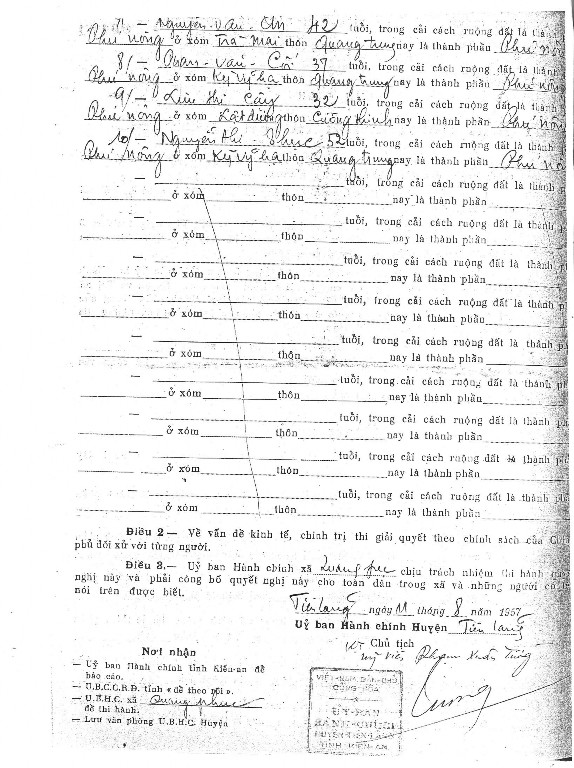 7/- Nguyễn Văn 42 tuổi, trong cải cách ruộng đất là thành
Phú nông ở xóm Trà Mai thôn Quang Trung nay là thành phần Phú nông
8/- Phan Văn Cối 37 tuổi, trong cải cách ruộng đất là thành
Phú nông ở xóm Kỳ Vỹ hạ thôn Quang Trung nay là thành phần Phú nông
9/- Lưu Thị Cầy 32 tuổi, trong cải cách ruộng đất là thành
Phú nông ở xóm Lật dương thôn nay là thành phần Phú nông
10/- Nguyễn Thị Thục 52 tuổi, trong cải cách ruộng đất là thành
Phú nông ở xóm Kỳ Vỹ hạ thôn Quang Trung nay là thành phần Phú nô
— tuổi, trong cải cách ruộng đất là thành p
ở xóm thôn nay là thành phần
— tuổi, trong cải cách ruộng đất là thành p
ở xóm thôn nay là thành phần
— tuổi, trong cải cách ruộng đất là thành ph
ở xóm thôn nay là thành phần
— tuổi, trong cải cách ruộng đất là thành p
ở xóm thôn nay là thành phần
— tuổi, trong cải cách ruộng đất là thành ph
ở xóm thôn nay là thành phần
— tuổi, trong cải cách ruộng đất là thành ph
ở xóm thôn nay là thành phần
— tuổi, trong cải cách ruộng đất là thành ph
ở xóm thôn nay là thành phần
— tuổi, trong cải cách ruộng đất là thành p
ở xóm thôn nay là thành phần
— tuổi, trong cải cách ruộng đất là thành phầ
ở xóm thôn nay là thành phần
Điều 2 — Về vấn đề kinh tế, chính trị thì giải quyết theo chính sách của
phủ đối xử với từng người.
Điều 3.— Uỷ ban Hành chính xã Quang Phục chịu trách nhiệm thi hành
nghị này và phải công bố quyết nghị này cho toàn dân trong xã và những người có
nói trên được biết.
Tiên Lãng ngày 11 tháng 8 năm 1957
Uỷ ban Hành chính Huyện Tiên Lãng
KT Chủ tịch
Uỷ viên Phạm Xuân
Nơi nhận
— Uỷ ban Hành chính tỉnh Kiến-an để
báo cáo.
— U.B.C.C.R.Đ. tỉnh «để theo dõi».
— U.B.H.C. xã Quang Phục
để thi hành.
— Lưu văn phòng U.B.H.C. Huyện
VIỆT-NAM DÂN-CHỦ
CỘNG-HÒA
ỦY-BAN
HÀNH-CHÍNH
HUYỆN TIÊN-LÃNG
TỈNH KIẾN-AN